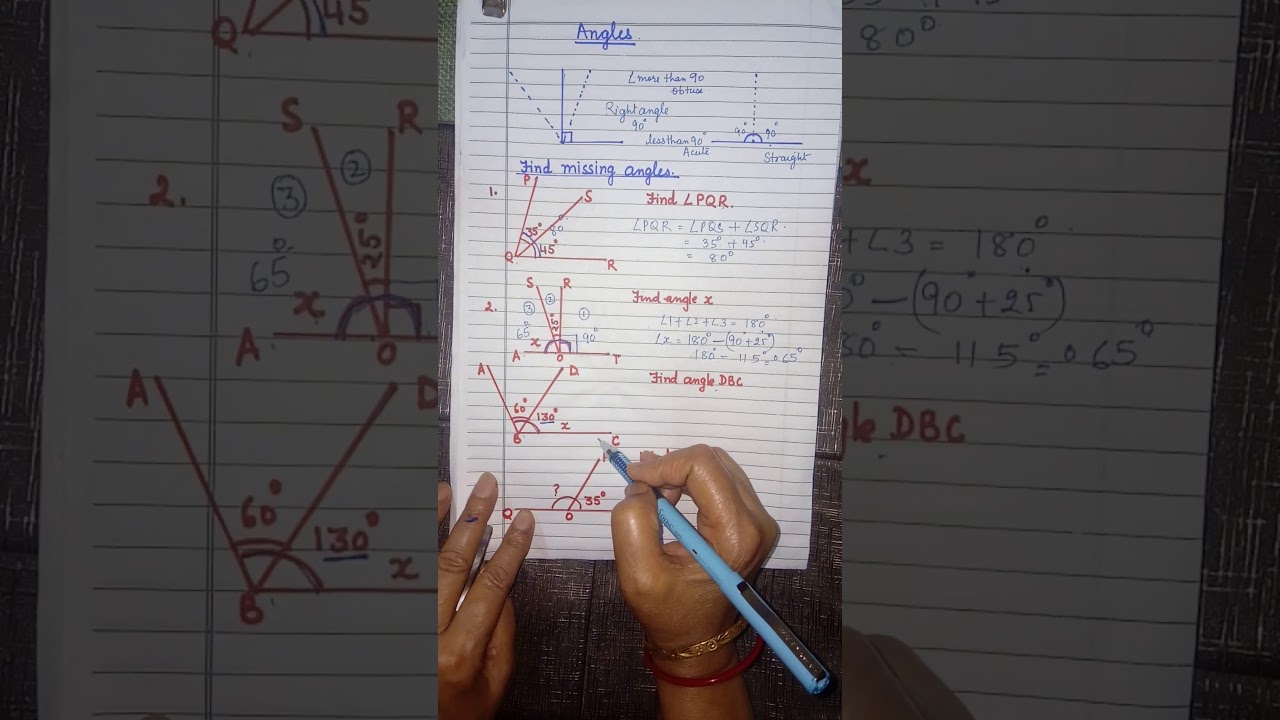 Angles
∠ more than 90
obtuse
Right angle
90°
less than 90°
Acute
90° 90°
Straight
Find missing angles.
1.
P
S
35°
80°
45°
Q
R
Find ∠PQR.
∠PQR = ∠PQS + ∠SQR.
= 35° + 45°
= 80°
2.
S R
③ ② ①
65° 25° 90°
x
A O T
Find angle x
∠1+∠2+∠3 = 180°
∠x = 180° - (90°+25°)
180° - 115° = 65°
A D
60°
130°
x
B C
Find angle DBC
?
35°
Q O